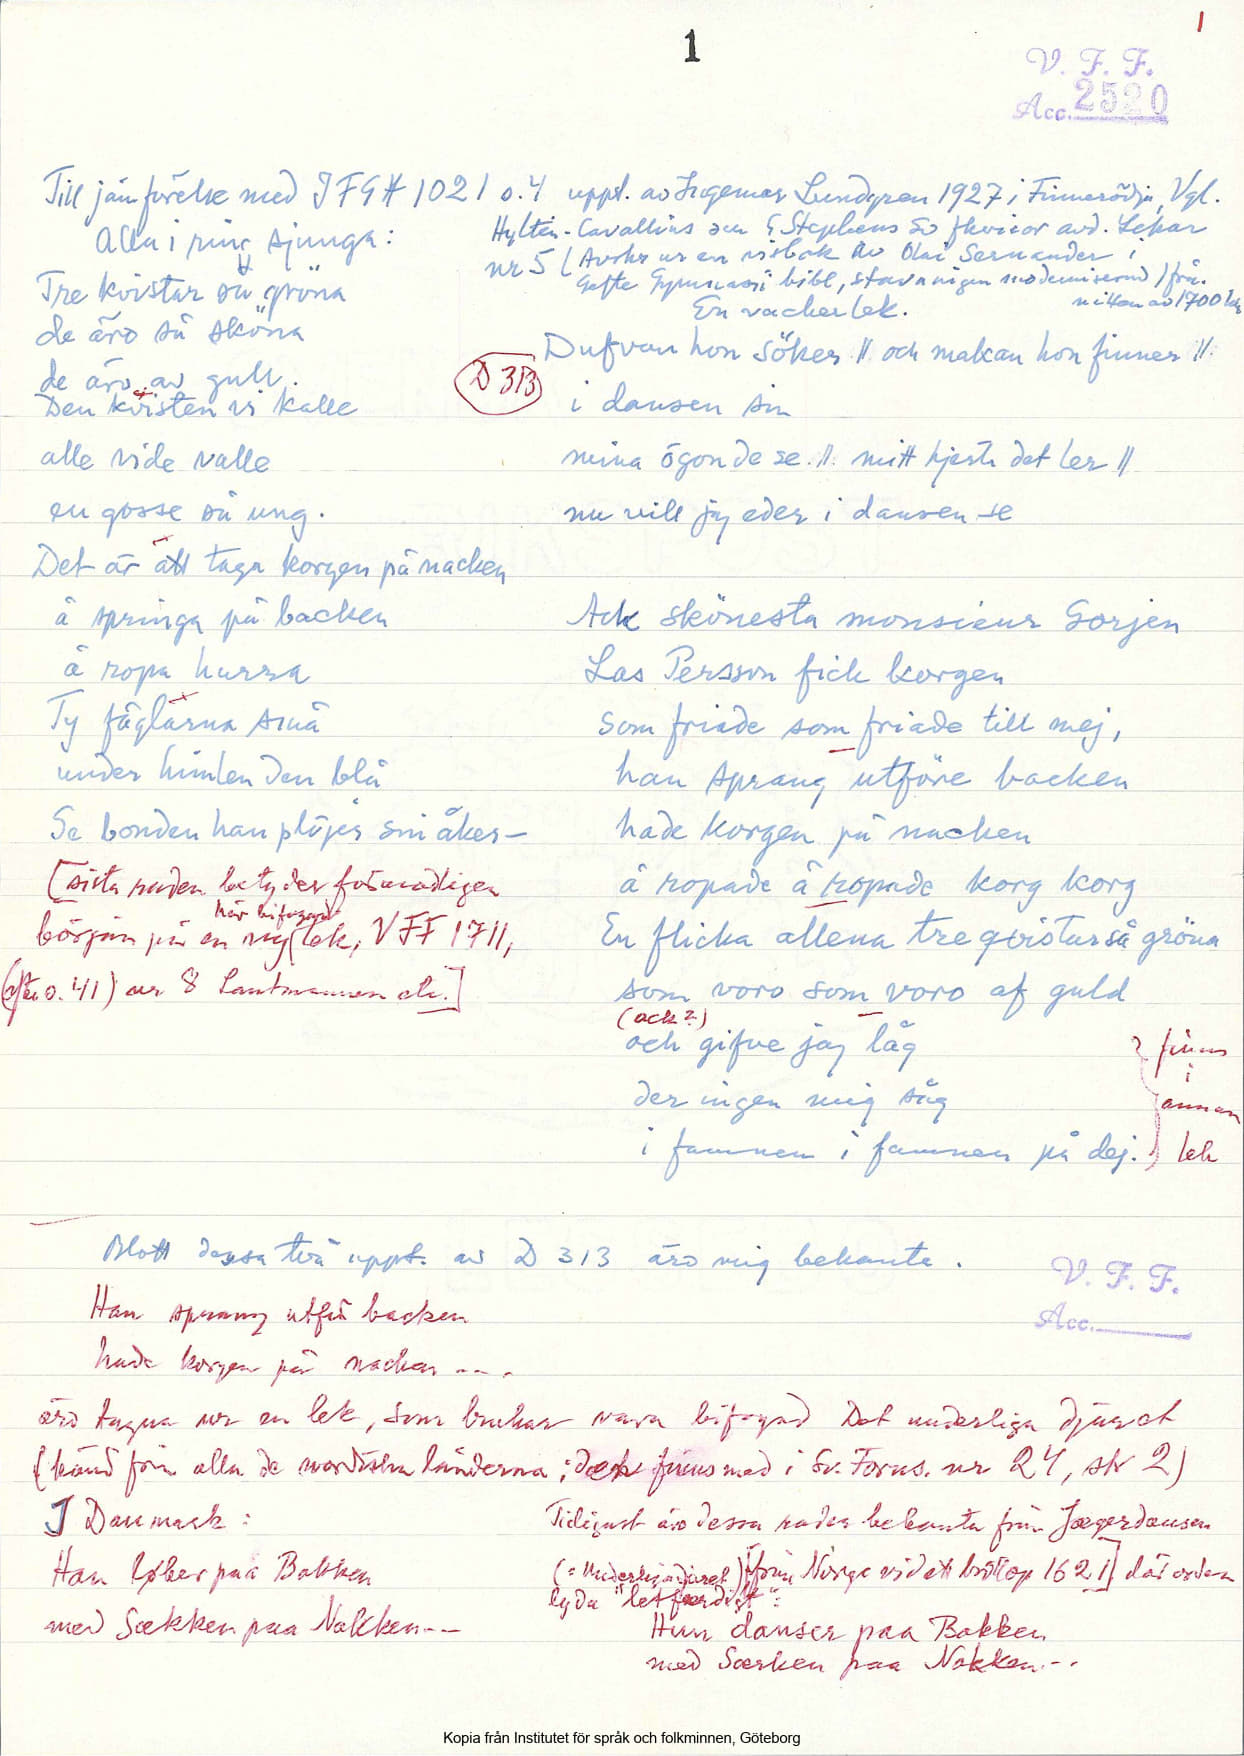 1
1
V. F. F.
Acc. 2520
Till jämförelse med IFGH 1021 s. 4 uppt. av Ingemar Lundgren 1927 i Finnerödja, Vgl.
Alla i ring sjunga:
Tre kvistar så gröna
de äro så sköna
de äro av gull.
Den kvisten vi kalle
alle vide valle
en gosse så ung.
Det är att taga korgen på nacken
å springa på backen
å ropa hurra
Ty fåglarna små
under himlen den blå
Se bonden han plöjer sin åker –
[sista raden betyder förmodligen
här bifogad
början på en ny lek, VFF 1711,
s. 41) nr 8 Lantmannen etc.]
Hyltén-Cavallius och G Stephens Sv fkvisor avd. Lekar
nr 5 (Avskr ur en visbok av Olai Sernander i
Gefle Gymnasii bibl, stavningen moderniserad) från
mitten av 1700
En vacker lek.
D 313
Dufvan hon söker :// och makan hon finner ://
i dansen sin
mina ögon de se :// mitt hjerta det ler ://
nu vill jag eder i dansen se
Ack skönesta monsieur Gorjen
Las Persson fick korgen
som friade som friade till mej,
han sprang utföre backen
hade korgen på nacken
å ropade å ropade korg korg
En flicka allena tre qvistar så gröna
som voro som voro af guld
(ack?)
och gifve jag låg
der ingen mig såg
i famnen i famnen på dej.
finns
i
annan
lek
Blott dessa två uppt. av D 313 äro mig bekanta.
V. F. F.
Acc.
Han sprang utför backen
hade korgen på nacken ---
äro tagna ur en lek, som brukar vara bifogad Det underliga djuret
(känd från alla de nordiska länderna; dock finns med i Sv. Forns. nr 24, str 2)
I Danmark:
Han løber paa Bakken
med Sækken paa Nakken ---
Tidigast äro dessa rader bekanta från Jægerdansen
(= Underliga djuret) [från Norge vid ett bröllop 1621] där orden
lyda "letfærdigt":
Hun danser paa Bakken
med Særken paa Nakken ---
Kopia från Institutet för språk och folkminnen, Göteborg